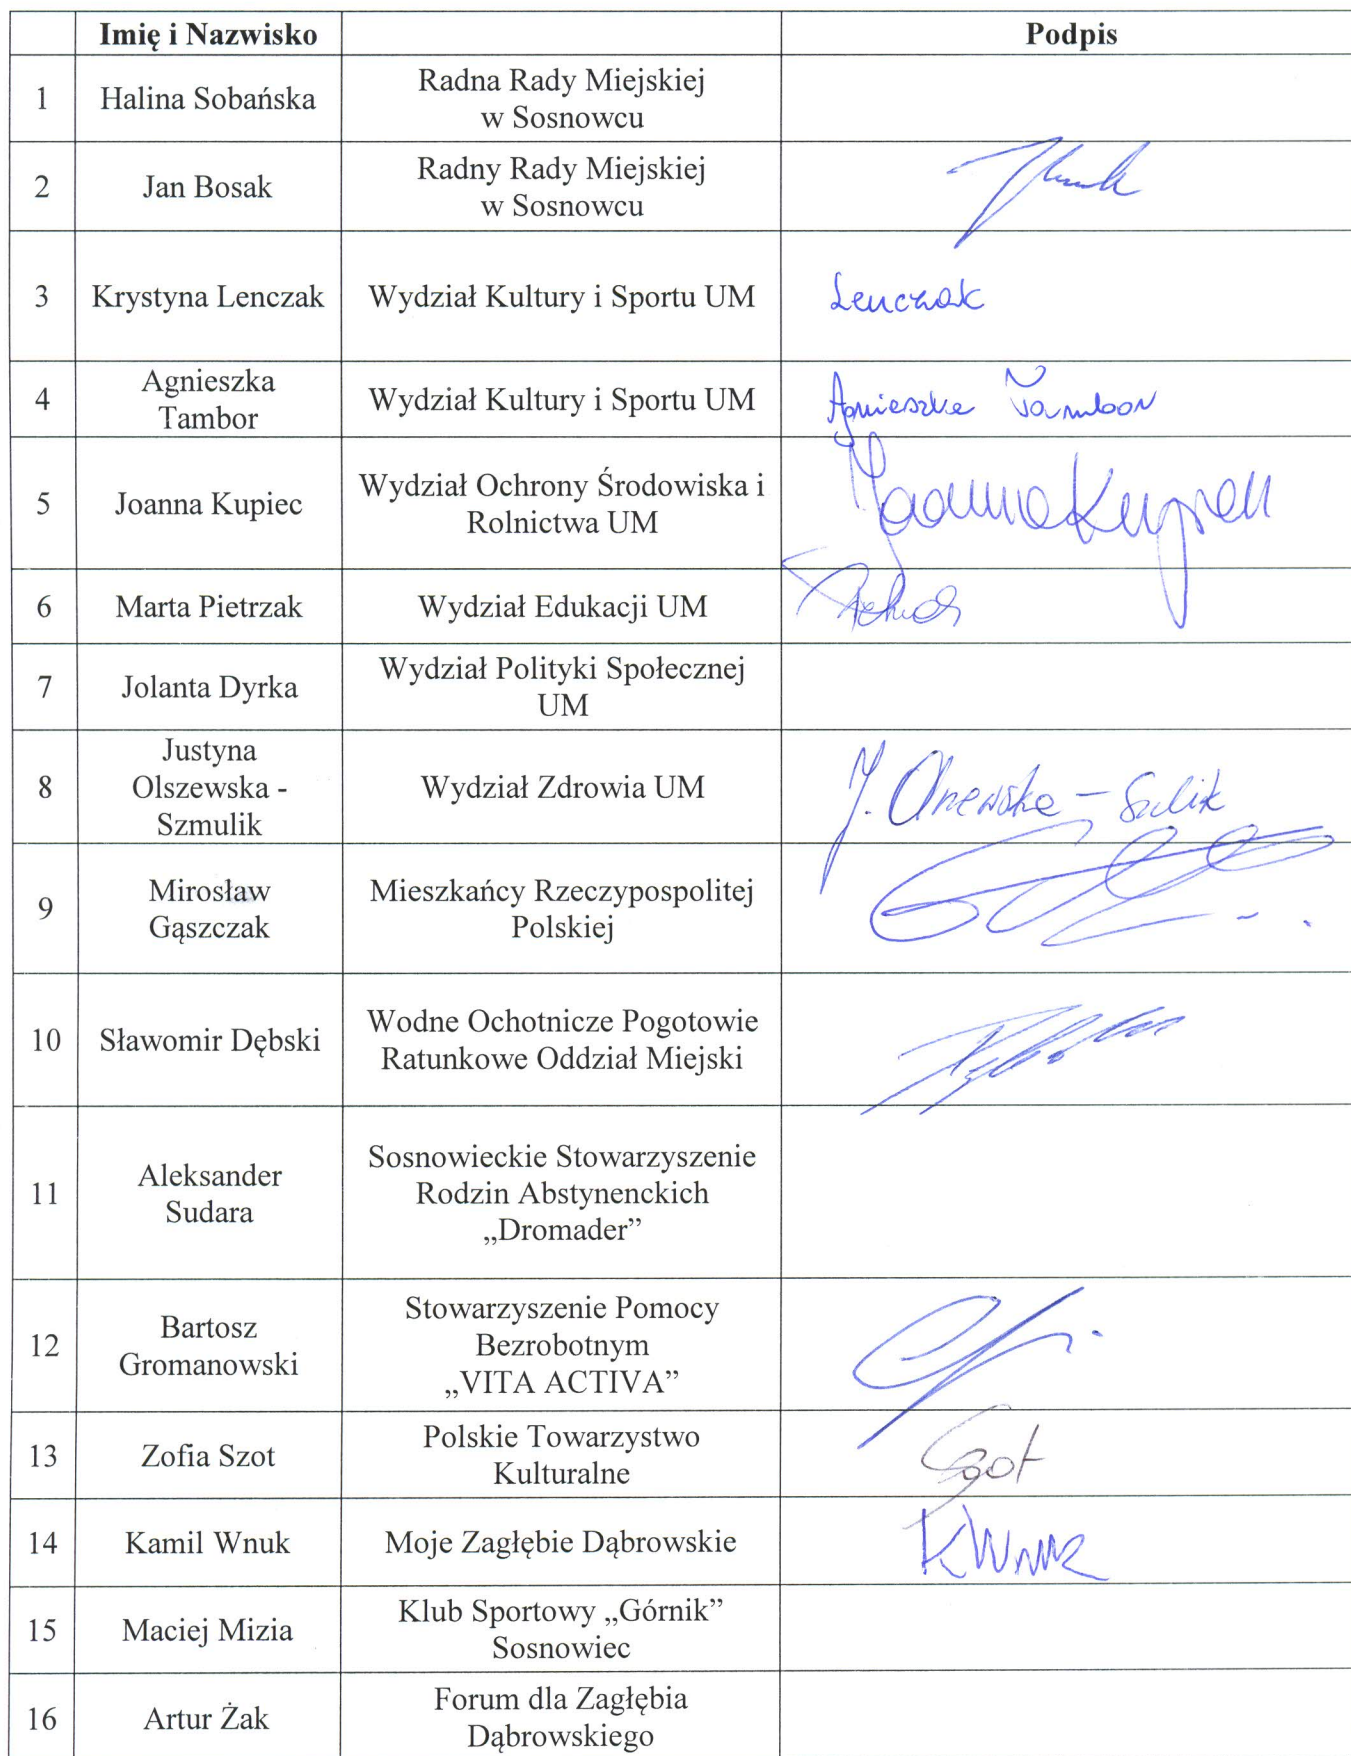 Imię i Nazwisko Podpis
1 Halina Sobańska Radna Rady Miejskiej
w Sosnowcu
2 Jan Bosak Radny Rady Miejskiej
w Sosnowcu
3 Krystyna Lenczak Wydział Kultury i Sportu UM Lenczak
4 Agnieszka
Tambor Wydział Kultury i Sportu UM Agnieszka Tambor
5 Joanna Kupiec Wydział Ochrony Środowiska i
Rolnictwa UM Joanna Kupiec
6 Marta Pietrzak Wydział Edukacji UM
7 Jolanta Dyrka Wydział Polityki Społecznej
UM
8 Justyna
Olszewska -
Szmulik Wydział Zdrowia UM J. Olszewska -
9 Mirosław
Gąszczak Mieszkańcy Rzeczypospolitej
Polskiej
10 Sławomir Dębski Wodne Ochotnicze Pogotowie
Ratunkowe Oddział Miejski
11 Aleksander
Sudara Sosnowieckie Stowarzyszenie
Rodzin Abstynenckich
„Dromader”
12 Bartosz
Gromanowski Stowarzyszenie Pomocy
Bezrobotnym
„VITA ACTIVA”
13 Zofia Szot Polskie Towarzystwo
Kulturalne Szot
14 Kamil Wnuk Moje Zagłębie Dąbrowskie KWnuk
15 Maciej Mizia Klub Sportowy „Górnik”
Sosnowiec
16 Artur Żak Forum dla Zagłębia
Dąbrowskiego